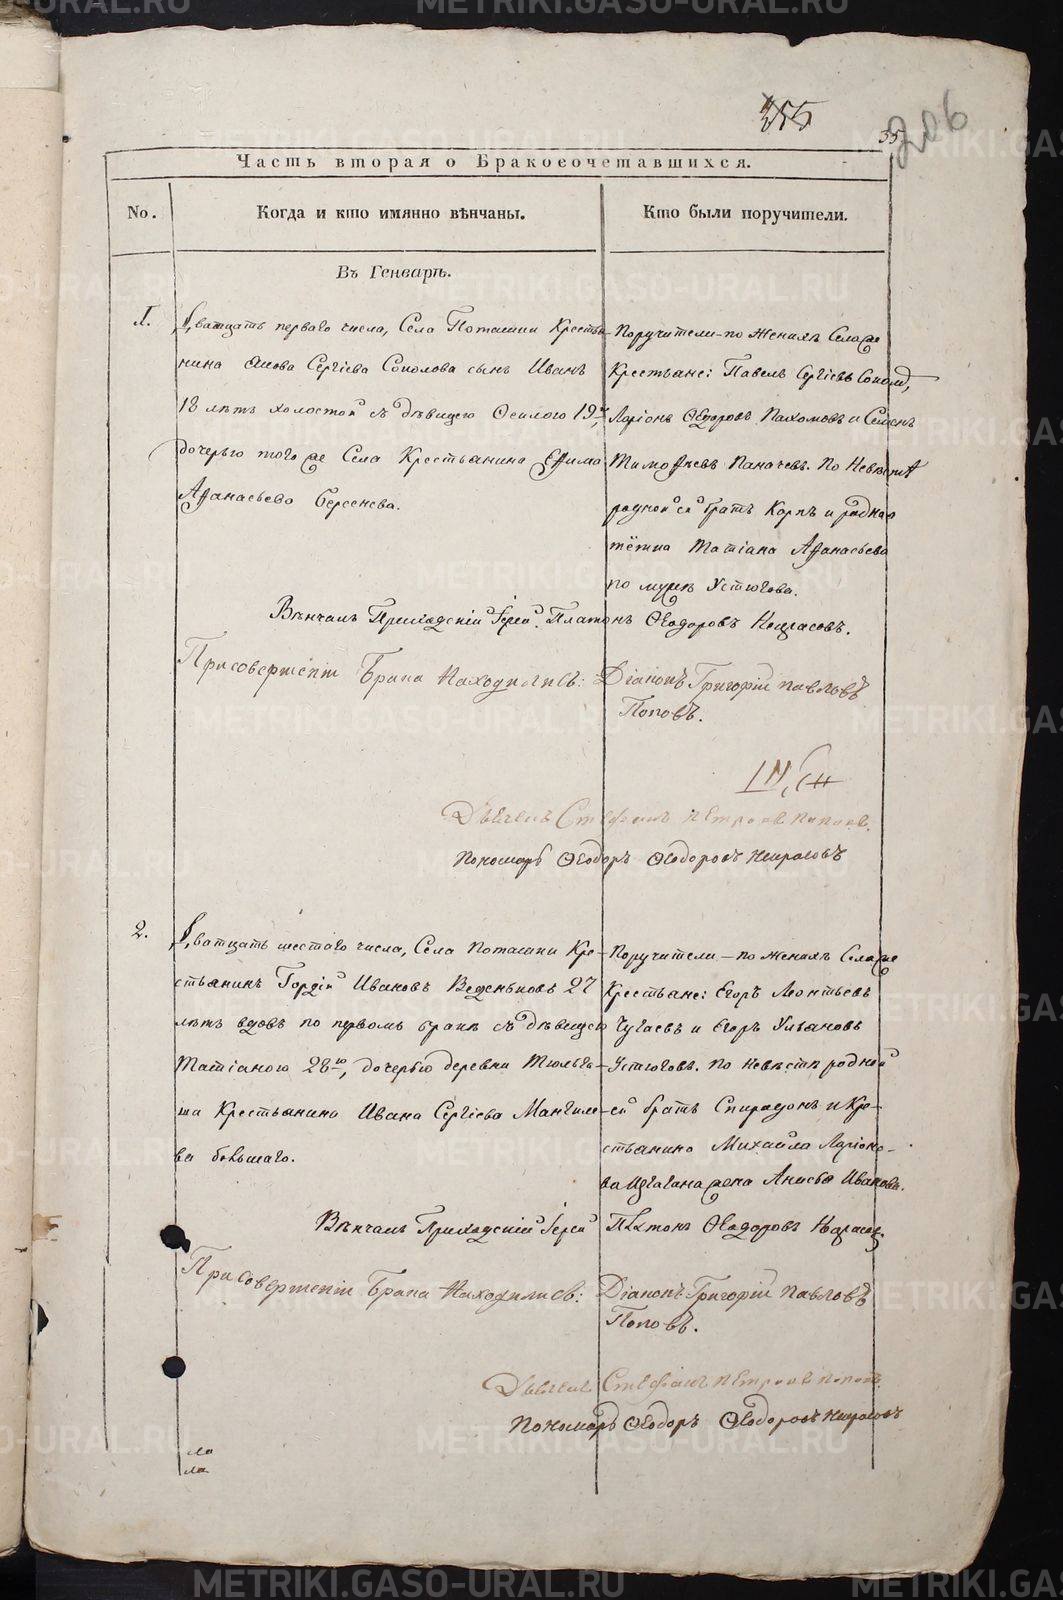 206
Часть вторая о Бракосочетавшихся.
No.
Когда и кто имянно вѣнчаны.
Кто были поручители.
Въ Генварѣ.
1.
Дватцать перваго числа, Села Поташки Крестья-
нина Якова Сергіева Соколова сынъ Иванъ
18 лѣтъ холостой съ дѣвицею 19
дочерью того же Села Крестьянина Ефима
Афанасьева Берсенева.
Поручители - по женихѣ Села же
Крестьяне: Павелъ Сергіевъ
Ларіонъ Ѳедоровъ Пахомовъ и Семенъ
Тимофѣевъ Паначевъ. По Невѣстѣ
родной ей братъ Карпъ и родная
тётка Татіана Афанасьева
по мужѣ Устюгова.
Вѣнчалъ Приходскій Іерей Платонъ Ѳеодоровъ Некрасовъ.
При совершеніи Брака Находились: Діаконъ Григорій Павловъ
Поповъ.
Дьячекъ Стефанъ Петровъ Поповъ.
Пономарь Ѳеодоръ Ѳеодоровъ Некрасовъ
2.
Дватцать шестаго числа, Села Поташки Кре-
стьянинъ Гордій Ивановъ Веденьковъ 27
лѣтъ вдовъ по первомъ бракѣ съ дѣвицею
Татіаною 28ю, дочерью деревни Тюльга-
ша Крестьянина Ивана Сергіева Мангиле-
ва большаго.
Поручители - по женихѣ Села же
Крестьяне: Егоръ Леонтьевъ
Чугаевъ и Егоръ Ульяновъ
Устюговъ. по Невѣстѣ родной
ей братъ Спиридонъ и Кре-
стьянина Михайла Ларіоно-
ва жена Анисья Иванова.
Вѣнчалъ Приходскій Іерей Платонъ Ѳеодоровъ
При совершеніи Брака Находились: Діаконъ Григорій Павловъ
Поповъ.
Дьячекъ Стефанъ Петровъ Поповъ
Пономарь Ѳеодоръ Ѳеодоровъ Некрасовъ
METRIKI.GASO-URAL.RU